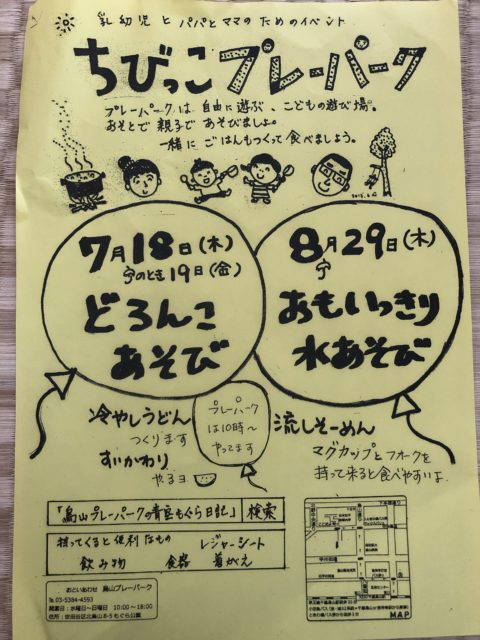 乳幼児とパパとママのためのイベント
ちびっこプレーパーク
プレーパークは自由に遊ぶ、こどもの遊び場。
おそとで親子であそびましょ。
一緒にごはんもつくって食べましょう。
7月18日(木)
のとき19日(金)
どろんこ
あそび
8月29日(木)
おもいっきり
水あそび
冷やしうどん
つくります
すいかわり
やるヨ
プレーパーク
は10時〜
やってます
流しそーめん
マグカップとフォークを
持って来ると食べやすいよ
「烏山プレーパークの青空もぐら日記」 検索
持ってくると便利なもの レジャーシート
飲み物 食器 着がえ
おといあわせ 烏山プレーパーク
TEL 03-5384-4593
開園日:水曜日〜日曜日 10:00〜18:00
住所:世田谷区北烏山おうもぐら公園
MAP